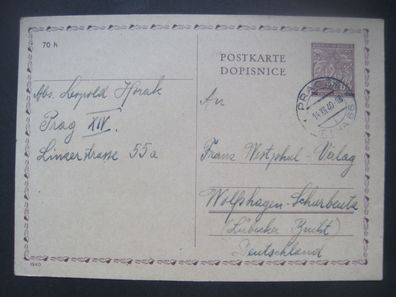 70 h
POSTKARTE
DOPISNICE
Abs. Leopold Horak
Prag XIV.
Linzerstrasse 55a
An
Franz Westphal-Verlag
Wolfshagen-Scharbeutz
(Lübecker Bucht)
Deutschland
1940